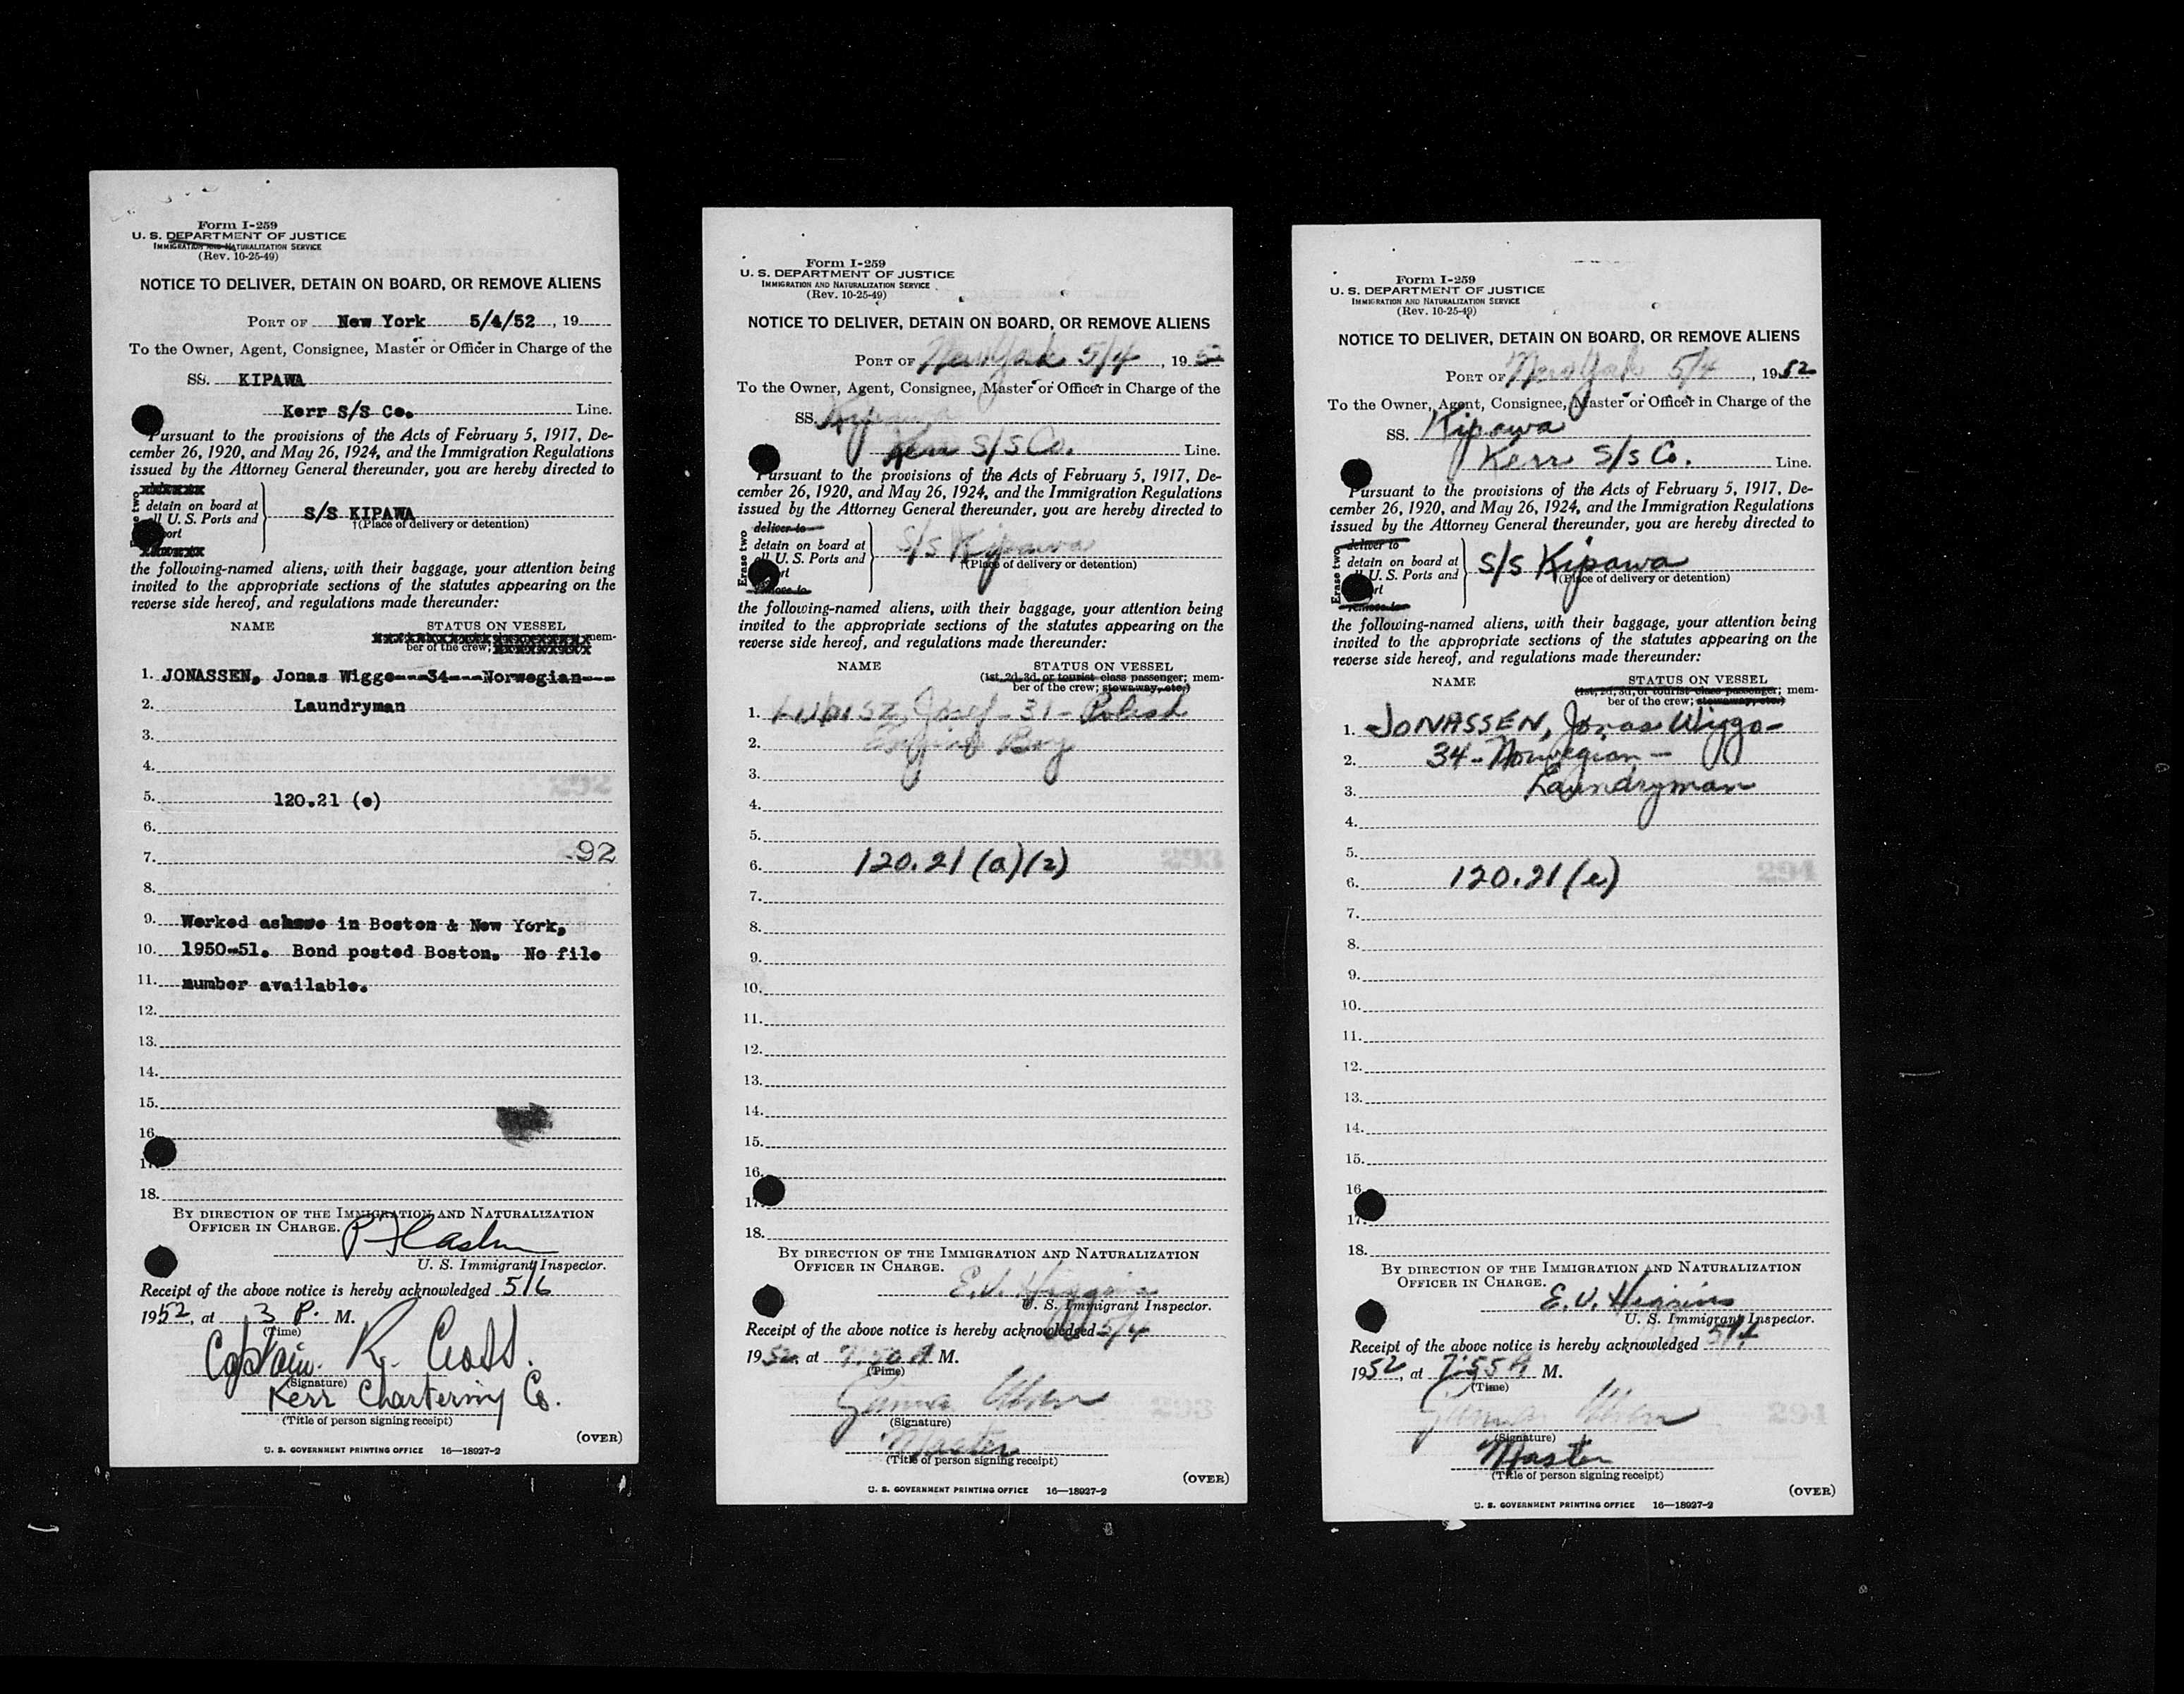 Form I-259
U. S. DEPARTMENT OF JUSTICE
IMMIGRATION AND NATURALIZATION SERVICE
(Rev. 10-25-49)
NOTICE TO DELIVER, DETAIN ON BOARD, OR REMOVE ALIENS
PORT OF New York 5/4/52, 19
To the Owner, Agent, Consignee, Master or Officer in Charge of the
SS. KIPAWA
Kerr S/S Co. Line.
Pursuant to the provisions of the Acts of February 5, 1917, De-
cember 26, 1920, and May 26, 1924, and the Immigration Regulations
issued by the Attorney General thereunder, you are hereby directed to
detain on board at
all U. S. Ports and
S/S KIPAWA
†(Place of delivery or detention)
the following-named aliens, with their baggage, your attention being
invited to the appropriate sections of the statutes appearing on the
reverse side hereof, and regulations made thereunder:
NAME STATUS ON VESSEL
mem-
ber of the crew;
1. JONASSEN, Jonas Wiggo---34---Norwegian---
2. Laundryman
3.
4.
292
5. 120.21 (e)
6.
7. 92
8.
9. Worked ashore in Boston & New York,
10. 1950-51. Bond posted Boston. No file
11. number available.
12.
13.
14.
15.
16.
17.
18.
BY DIRECTION OF THE IMMIGRATION AND NATURALIZATION
OFFICER IN CHARGE.
U. S. Immigrant Inspector.
Receipt of the above notice is hereby acknowledged 5/6
1952, at 3 P. M.
(Time)
Captain R.
(Signature)
Kerr Chartering Co.
(Title of person signing receipt)
(OVER)
U. S. GOVERNMENT PRINTING OFFICE 16—18927-2
Form I-259
U. S. DEPARTMENT OF JUSTICE
IMMIGRATION AND NATURALIZATION SERVICE
(Rev. 10-25-49)
NOTICE TO DELIVER, DETAIN ON BOARD, OR REMOVE ALIENS
PORT OF New York 5/4, 1952
To the Owner, Agent, Consignee, Master or Officer in Charge of the
SS. Kipawa
Kerr S/S Co. Line.
Pursuant to the provisions of the Acts of February 5, 1917, De-
cember 26, 1920, and May 26, 1924, and the Immigration Regulations
issued by the Attorney General thereunder, you are hereby directed to
Erase two
deliver to
detain on board at
all U. S. Ports and
remove to
S/S Kipawa
†(Place of delivery or detention)
the following-named aliens, with their baggage, your attention being
invited to the appropriate sections of the statutes appearing on the
reverse side hereof, and regulations made thereunder:
NAME STATUS ON VESSEL
(1st, 2d, 3d, or tourist class passenger; mem-
ber of the crew; stowaway, etc.)
1. Josef - 31 - Polish
2. Engine Boy
3.
4.
5.
6. 120.21 (a)(2) 293
7.
8.
9.
10.
11.
12.
13.
14.
15.
16.
17.
18.
BY DIRECTION OF THE IMMIGRATION AND NATURALIZATION
OFFICER IN CHARGE.
E.V. Higgins
U. S. Immigrant Inspector.
Receipt of the above notice is hereby acknowledged 5/4
1952, at 7:50 A M.
(Time)
293
(Signature)
Master
(Title of person signing receipt)
(OVER)
U. S. GOVERNMENT PRINTING OFFICE 16—18927-2
Form I-259
U. S. DEPARTMENT OF JUSTICE
IMMIGRATION AND NATURALIZATION SERVICE
(Rev. 10-25-49)
NOTICE TO DELIVER, DETAIN ON BOARD, OR REMOVE ALIENS
PORT OF New York 5/4, 1952
To the Owner, Agent, Consignee, Master or Officer in Charge of the
SS. Kipawa
Kerr S/S Co. Line.
Pursuant to the provisions of the Acts of February 5, 1917, De-
cember 26, 1920, and May 26, 1924, and the Immigration Regulations
issued by the Attorney General thereunder, you are hereby directed to
Erase two
deliver to
detain on board at
all U. S. Ports and
remove to
S/S Kipawa
†(Place of delivery or detention)
the following-named aliens, with their baggage, your attention being
invited to the appropriate sections of the statutes appearing on the
reverse side hereof, and regulations made thereunder:
NAME STATUS ON VESSEL
(1st, 2d, 3d, or tourist class passenger; mem-
ber of the crew; stowaway, etc.)
1. JONASSEN, Jonas Wiggo -
2. 34 - Norwegian -
3. Laundryman
4.
5.
6. 120.21 (e) 294
7.
8.
9.
10.
11.
12.
13.
14.
15.
16.
17.
18.
BY DIRECTION OF THE IMMIGRATION AND NATURALIZATION
OFFICER IN CHARGE.
E.V. Higgins
U. S. Immigrant Inspector.
Receipt of the above notice is hereby acknowledged 5/4
1952, at 7:55 A M.
(Time)
294
(Signature)
Master
(Title of person signing receipt)
(OVER)
U. S. GOVERNMENT PRINTING OFFICE 16—18927-2